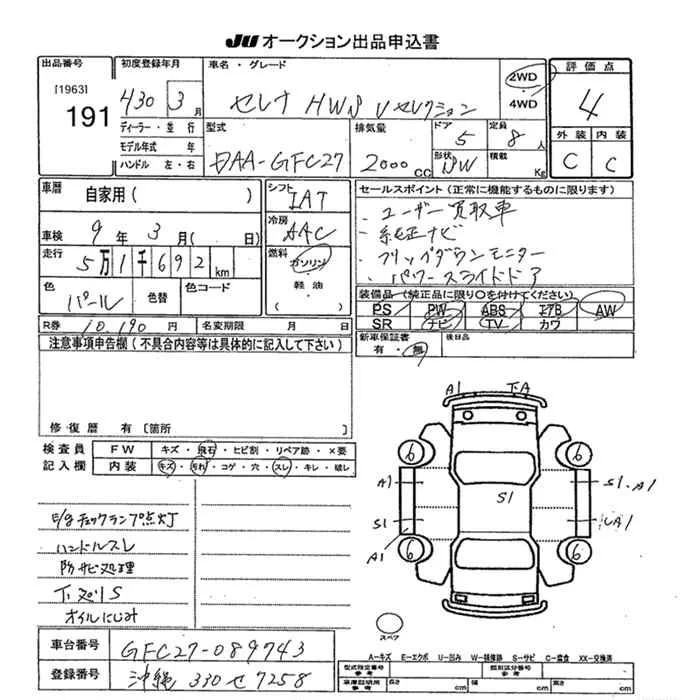 JU オークション出品申込書
出品番号
[1963]
191
初度登録年月
H30年 3月
ディーラー・並行
モデル年式 年
ハンドル 左・右
車名・グレード
セレナ HWS Vセレクション
2WD
・
4WD
評価点
4
外装 内装
C C
型式
DAA-GFC27
排気量
2000cc
ドア
5
形状
SW
定員
8人
積載
Kg
車歴
自家用( )
車検 9年 3月( 日)
走行 5万1千692km
色
パール
色替
色コード
シフト
IAT
冷房
AAC
燃料
ガソリン
・
軽油
( )
R券 10,190円
名変期限 月 日
セールスポイント(正常に機能するものに限ります)
・ユーザー買取車
・純正ナビ
・フリップダウンモニター
・パワースライドドア
装備品(純正品に限り○を付けてください)
PS PW ABS エアB AW
SR ナビ TV カワ
新車保証書
有・無
後日品
注意事項申告欄(不具合内容等は具体的に記入して下さい)
修復歴 有[箇所
検査員
記入欄
FW キズ・飛石・ヒビ割・リペア跡・×要
内装 キズ・汚れ・コゲ・穴・スレ・キレ・破レ
E/gチェックランプ点灯
ハンドルスレ
防サビ処理
下廻りS
オイルにじみ
A1 下A
6 6
A1 S1 S1.A1
S1 A1
A1
6 6
スペア
車台番号 GFC27-089743
登録番号 沖縄 330 せ 7258
A-キズ E-エクボ U-凹み W-補修跡 S-サビ C-腐食 XX-交換済
型式指定番号
参考
類別区分番号
参考
車庫証明用
参考
長さ cm 幅 cm 高さ cm